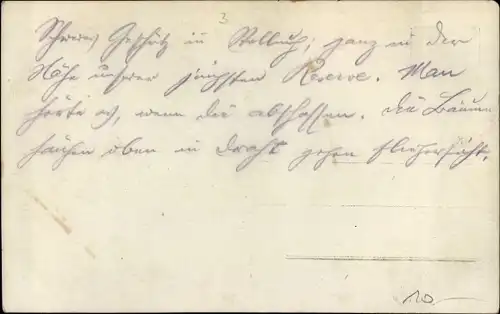 3
Schweres Geschütz in Stellung; ganz in der
Nähe unserer jüngsten Reserve. Man
hörte es, wenn die abschossen. Die Bäume
oben in Draht gegen Fliegersicht.
10